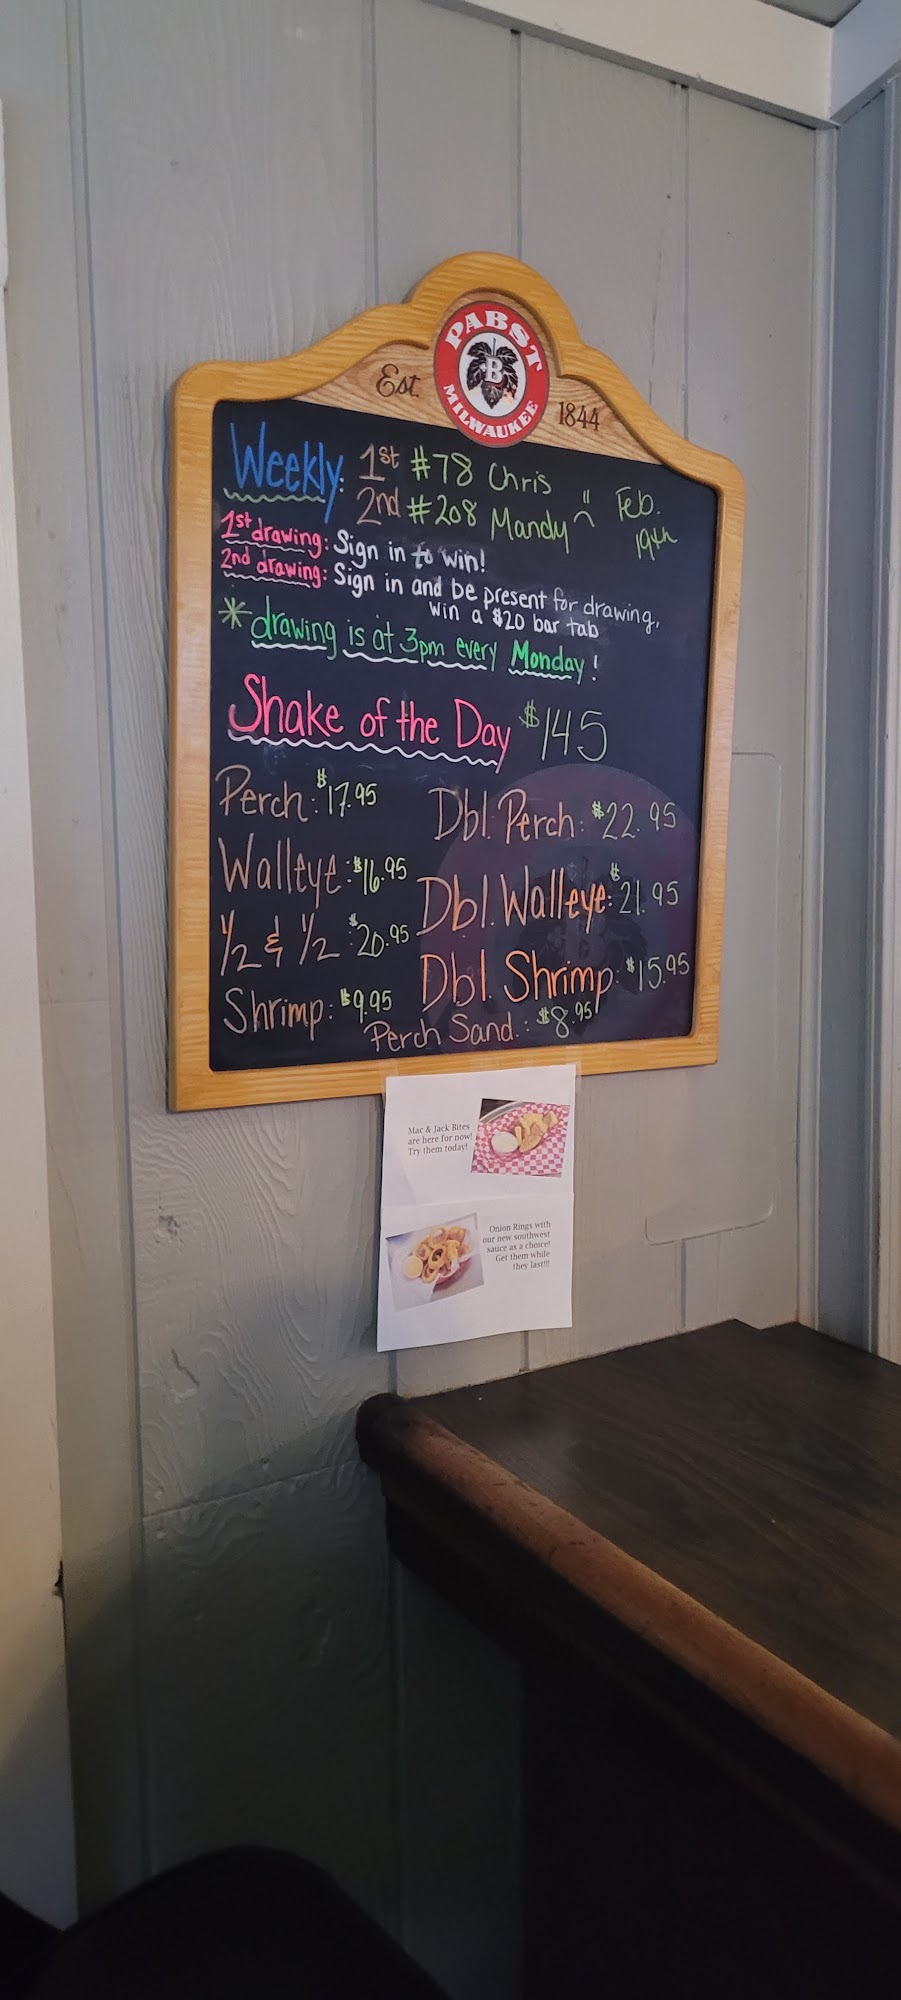 PABST
B
MILWAUKEE
Est. 1844
Weekly: 1st #78 Chris
2nd #208 Mandy :( Feb. 19th
1st drawing: Sign in to win!
2nd drawing: Sign in and be present for drawing,
win a $20 bar tab
* drawing is at 3pm every Monday!
Shake of the Day $145
Perch: $17.95 Dbl. Perch: $22.95
Walleye: $16.95 Dbl. Walleye: $21.95
1/2 & 1/2: $20.95 Dbl. Shrimp: $15.95
Shrimp: $9.95
Perch Sand.: $8.95
Mac & Jack Bites
are here for now!
Try them today!
Onion Rings with
our new southwest
sauce as a choice!
Get them while
they last!!!